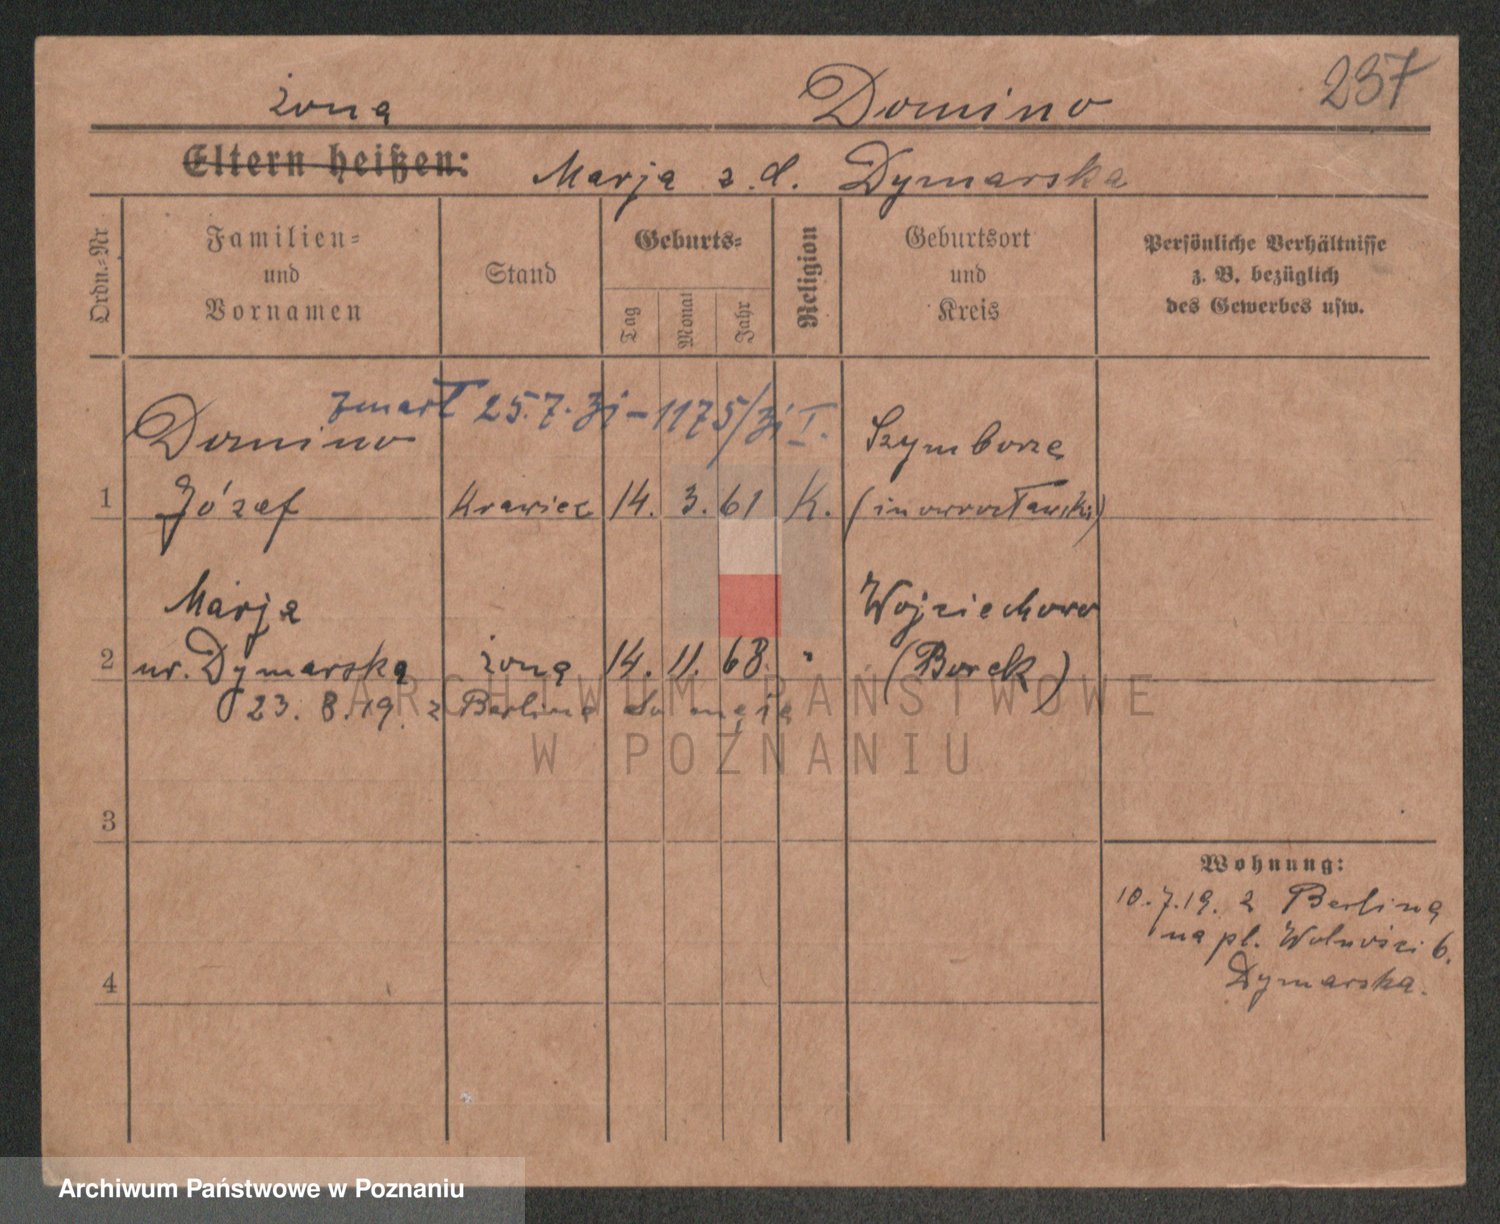 żona Domino 237
Eltern heißen: Marja z d. Dymarska
Ordn.=Nr
Familien=
und
Vornamen
Stand
Geburts=
Tag
Monat
Jahr
Religion
Geburtsort
und
Kreis
Persönliche Verhältnisse
z. B. bezüglich
des Gewerbes usw.
zmarł 25.7.31 – 1175/31 I.
Domino Szymborze
1 Józef Krawiec 14. 3. 61 K. (inowrocławski)
Marja Wojciechowo
2 ur. Dymarska żona 14. 11. 68. " (Borek)
23. 8. 19. z Berlina do męża
ARCHIWUM PAŃSTWOWE
W POZNANIU
3
Wohnung:
10.7.19. z Berlina
na pl. Wolności 6.
Dymarska.
4
Archiwum Państwowe w Poznaniu